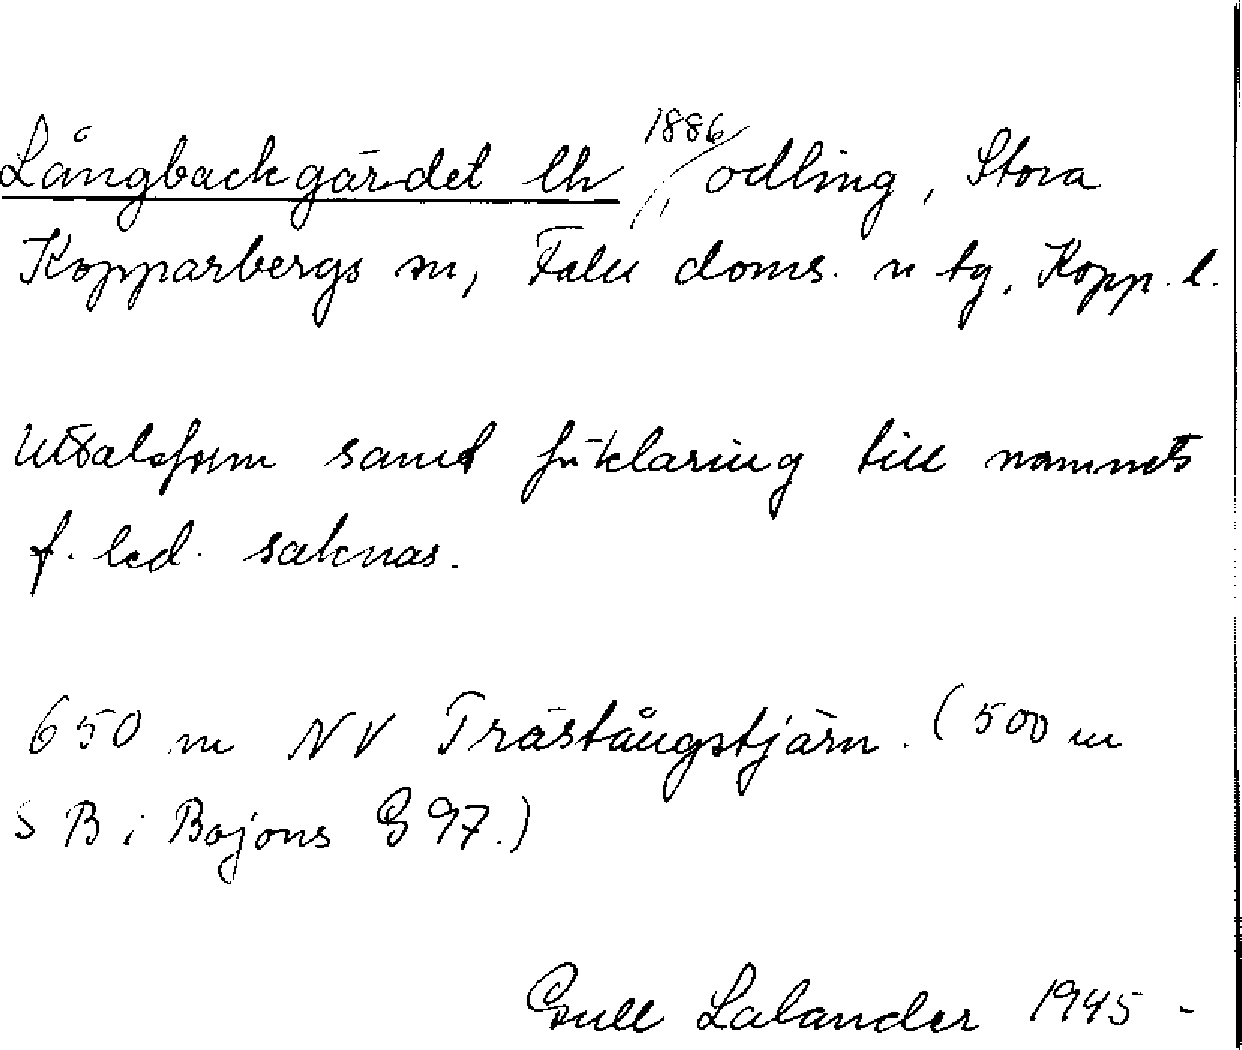 Långbackgärdet lh 1886, odling, Stora
Kopparbergs sn, Falu doms. o tg, Kopp. l.
Uttalsform samt förklaring till namnets
f. led. saknas.
650 m NV Trästångstjärn. (500 m
S B i Bojons G 97.)
Gull Lalander 1945 -